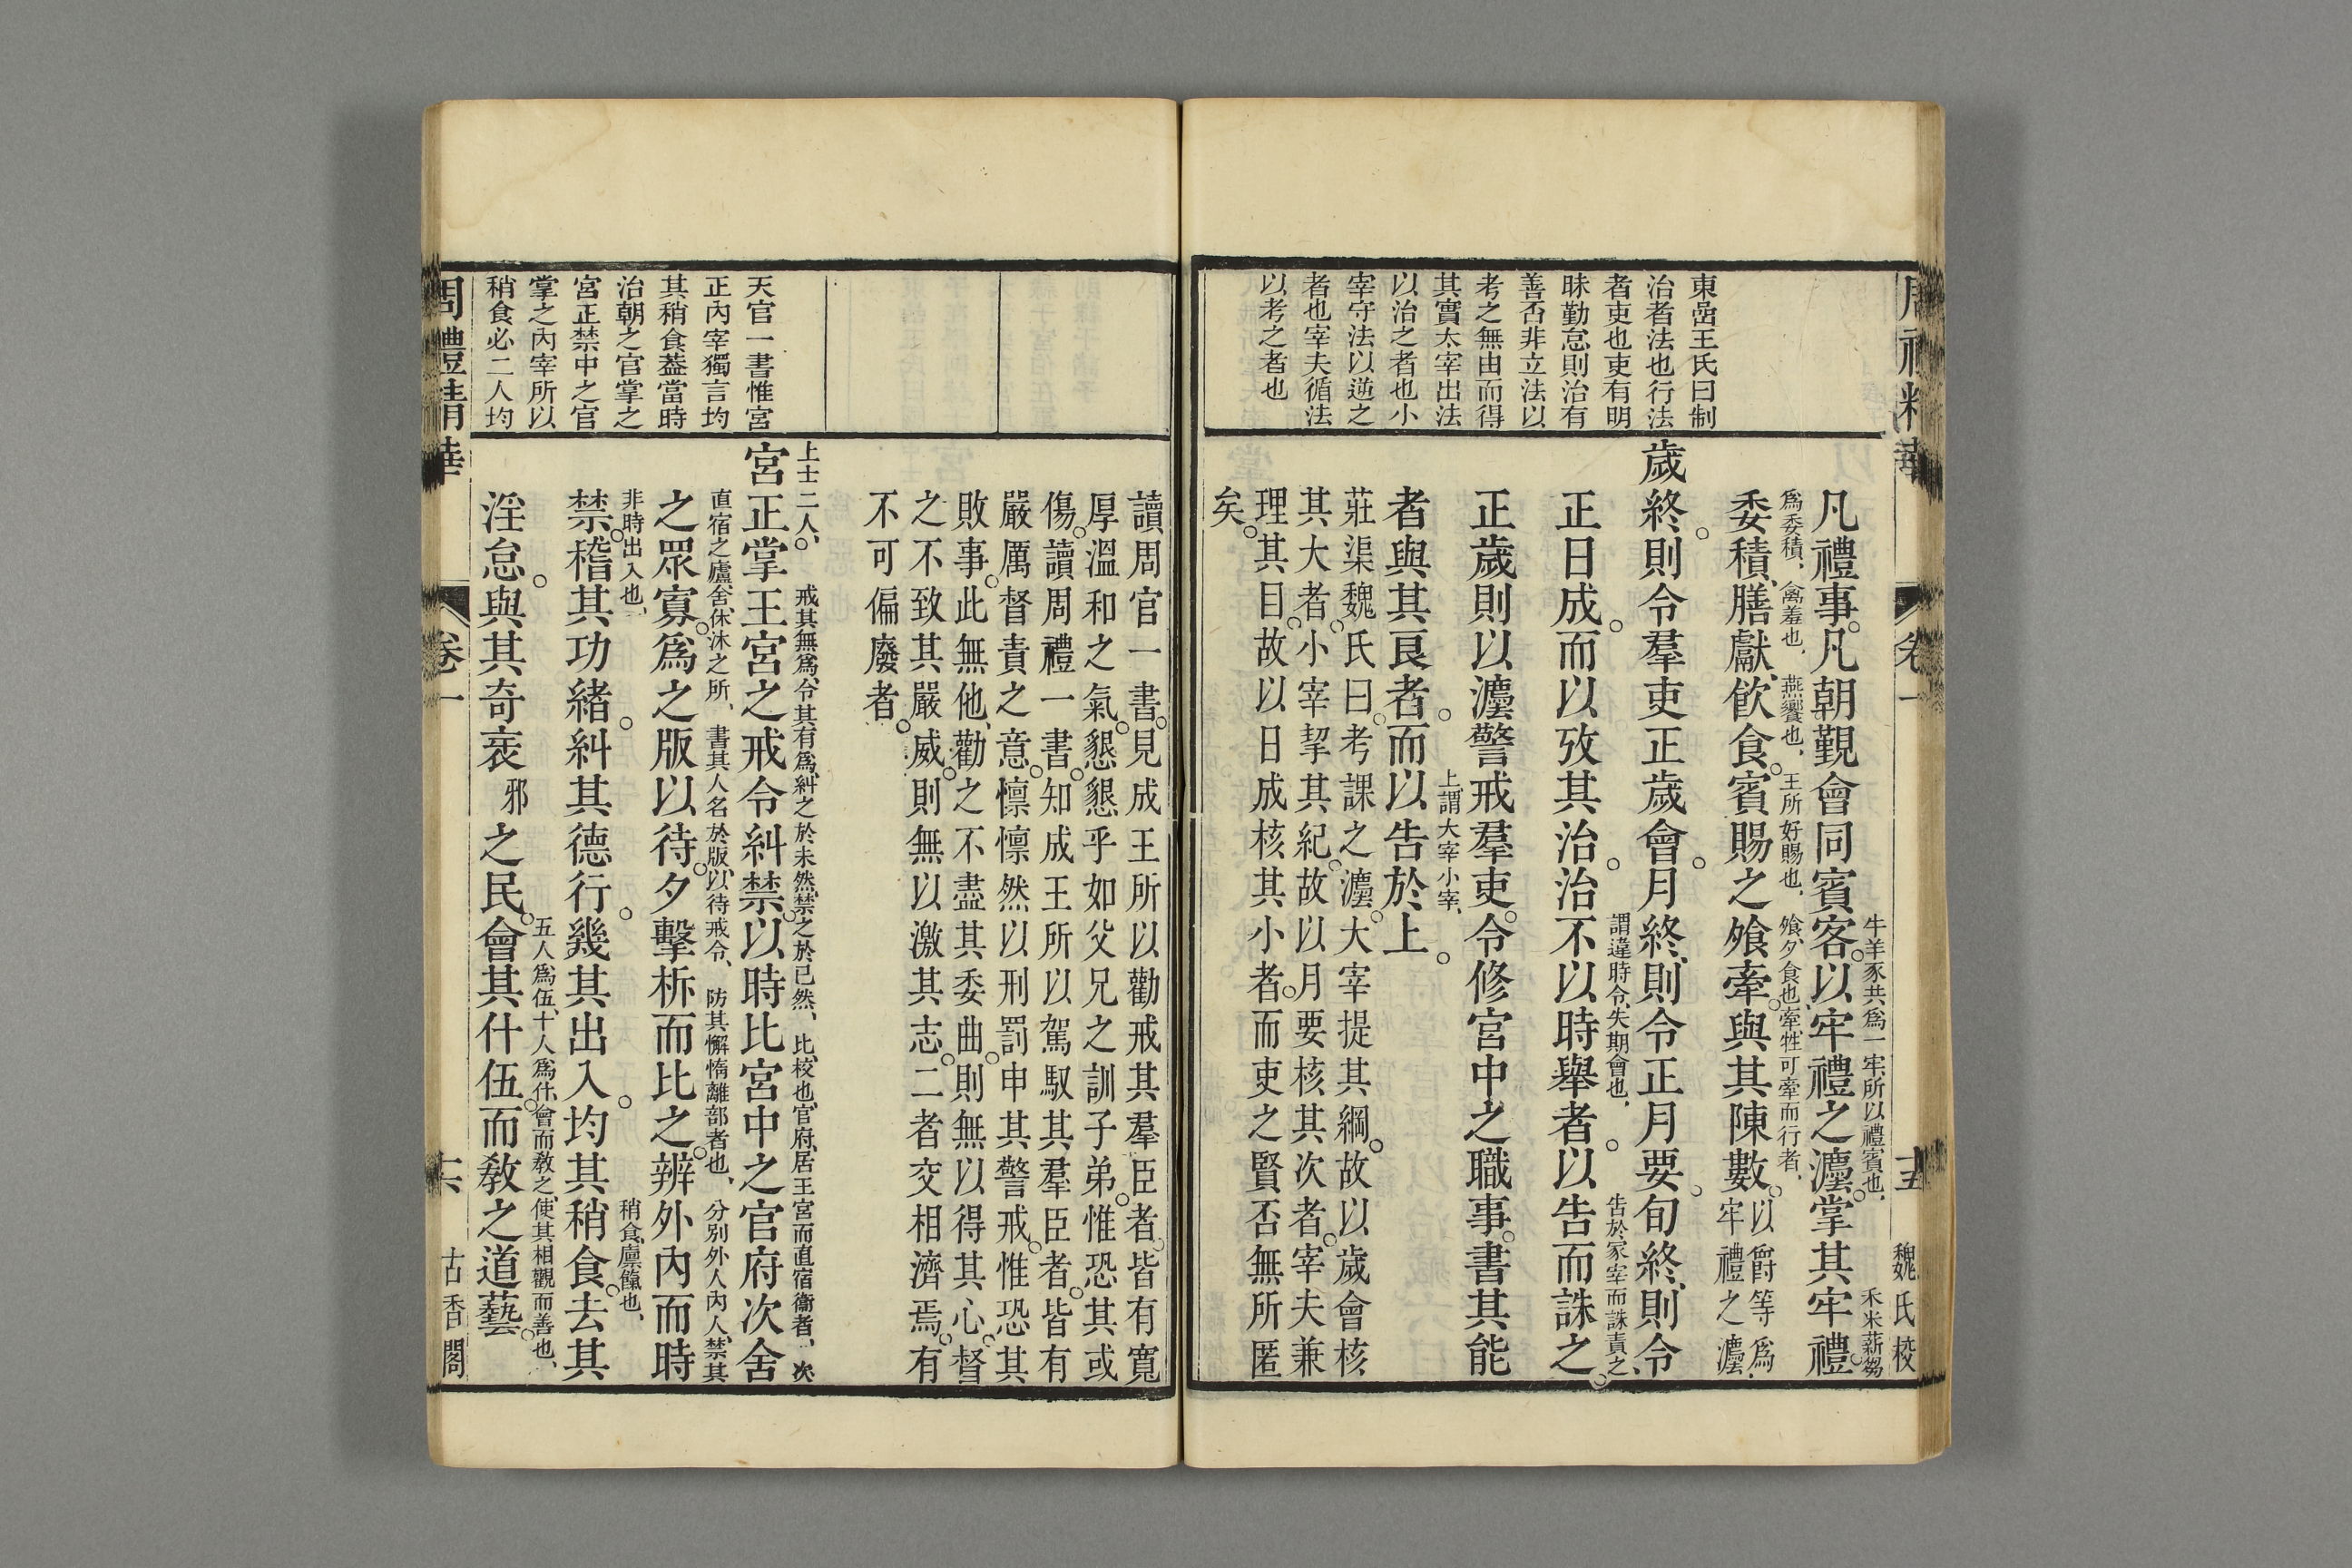 周禮精華
卷一
十五
魏氏校
東嵒王氏曰制
治者法也行法
者吏也吏有明
昧勤怠則治有
善否非立法以
考之無由而得
其實太宰出法
以治之者也小
宰守法以逆之
者也宰夫循法
以考之者也
牛羊豕共爲一牢、所以禮賓也、禾米薪芻
凡禮事。凡朝覲會同賓客。以牢禮之灋。掌其牢禮
爲委積、禽羞也、燕饗也、王所好賜也、飧、夕食也、牽、牲可牽而行者、
委積、膳獻、飲食。賓賜之飧牽。與其陳數。以爵等爲牢禮之灋、
歲終。則令羣吏正歲會。月終、則令正月要。旬終、則令
謂違時令、失期會也、告於冢宰而誅責之、
正日成。而以攷其治。治不以時舉者。以告而誅之。
正歲則以灋警戒羣吏。令修宮中之職事。書其能
上、謂大宰小宰、
者與其良者。而以告於上。
莊渠魏氏曰。考課之灋。大宰提其綱。故以歲會核
其大者。小宰挈其紀。故以月要核其次者。宰夫兼
理其目。故以日成核其小者。而吏之賢否無所匿
矣。
讀周官一書。見成王所以勸戒其羣臣者。皆有寬
厚溫和之氣。懇懇乎如父兄之訓子弟。惟恐其或
傷。讀周禮一書。知成王所以駕馭其羣臣者。皆有
嚴厲督責之意。懍懍然以刑罰申其警戒。惟恐其
敗事。此無他、勸之不盡其委曲。則無以得其心。督
之不致其嚴威。則無以激其志。二者交相濟焉。有
不可偏廢者。
天官一書惟宮
正內宰獨言均
其稍食葢當時
治朝之官掌之
宮正禁中之官
掌之內宰所以
稍食必二人均
上士二人、戒其無爲、令其有爲、糾之於未然、禁之於已然、比、校也、官府、居王宮而直宿衞者、次
宮正掌王宮之戒令糾禁。以時比宮中之官府次舍
直宿之廬、舍、休沐之所、書其人名於版、以待戒令、防其懈惰離部者也、分別外人內人、禁其
之眾寡。爲之版以待。夕擊柝而比之。辨外內而時
非時出入也、稍食、廩餼也、
禁。稽其功緒。糾其德行。幾其出入。均其稍食。去其
五人爲伍、十人爲什、會而敎之、使其相觀而善也、
淫怠。與其奇衺邪之民。會其什伍。而敎之道藝。
周禮精華
卷一
十六
古香閣